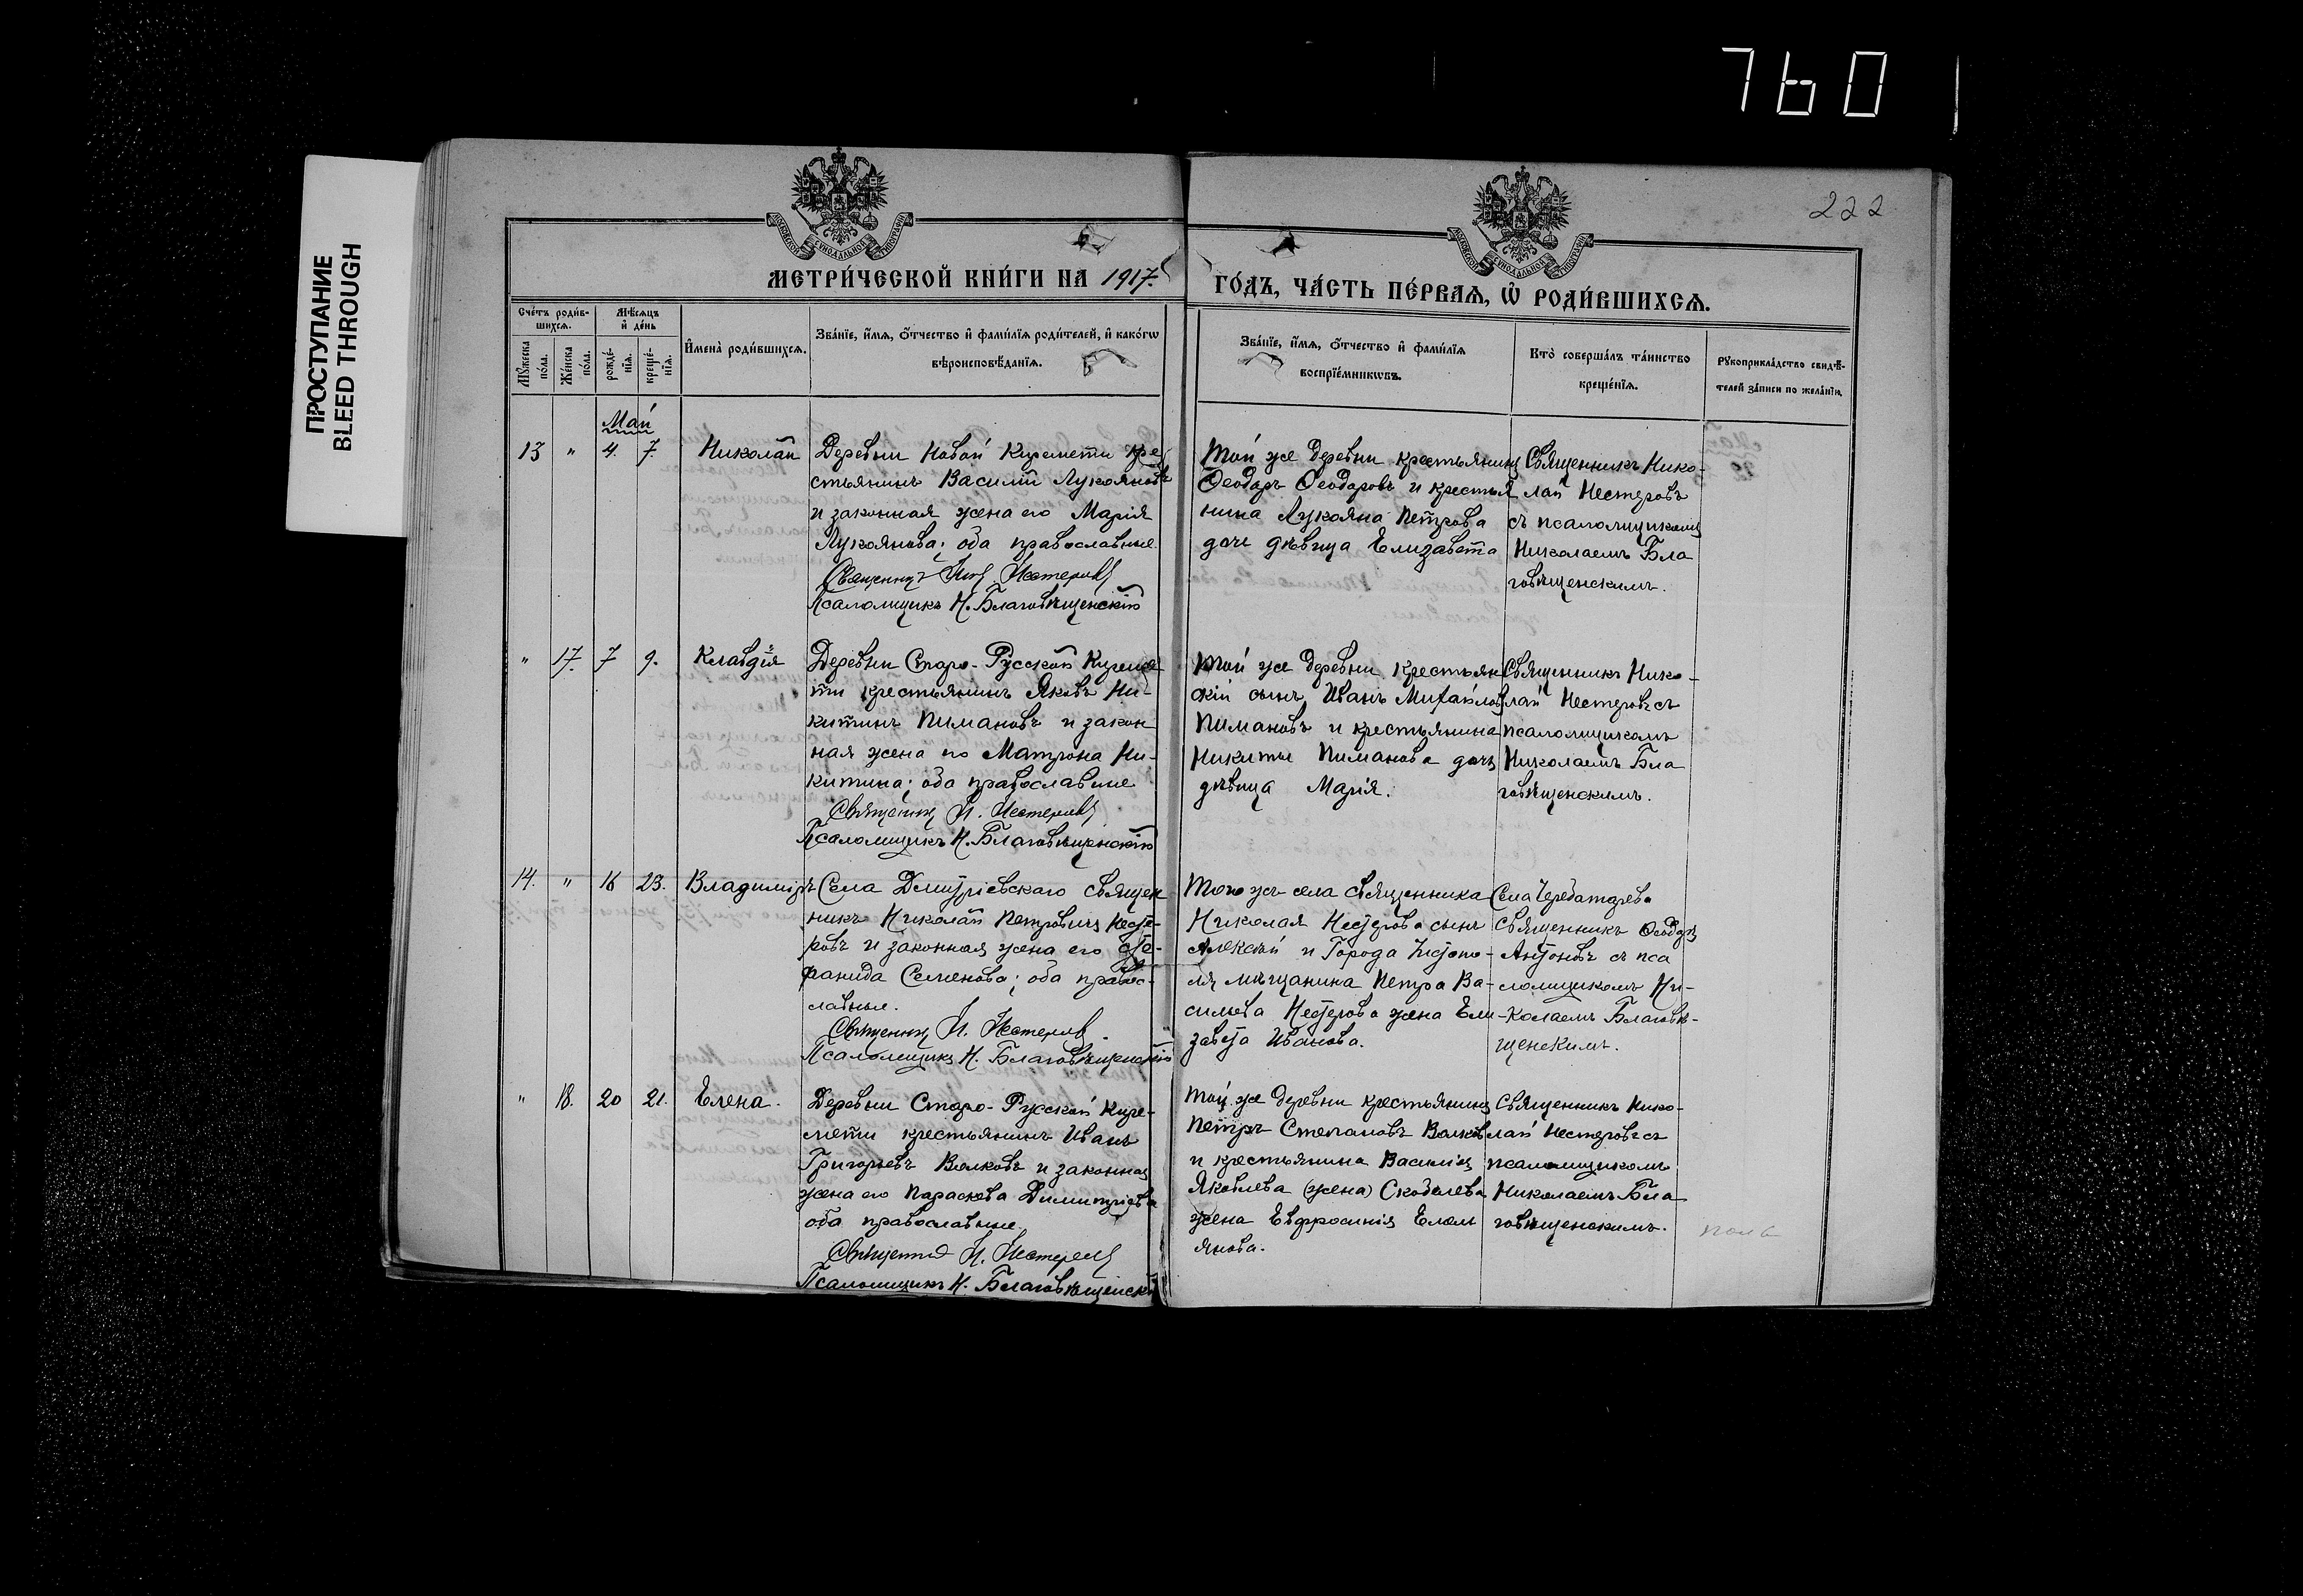 760
ПРОСТУПАНИЕ
BLEED THROUGH
222
МОСКОВСКОЙ СѴНОДАЛЬНОЙ ТИПОГРАФІИ
МОСКОВСКОЙ СѴНОДАЛЬНОЙ ТИПОГРАФІИ
МЕТРИ́ЧЕСКОЙ КНИ́ГИ НА 1917.
ГО́ДЪ, ЧА́СТЬ ПЕ́РВАѦ, Ѡ҆ РОДИ́ВШИХСѦ.
Сче́тъ роди́в-
шихсѧ.
Мѣ́сѧцъ
и҆ де́нь
Мꙋ́жеска
по́ла.
Же́нска
по́ла.
рожде́-
нїѧ.
креще́-
нїѧ.
И҆мена̀ роди́вшихсѧ.
Зва́нїе, и҆́мѧ, ѻ҆́тчество и҆ фами́лїѧ роди́телей, и҆ како́гѡ
вѣроисповѣ́данїѧ.
Зва́нїе, и҆́мѧ, ѻ҆́тчество и҆ фами́лїѧ
воспрїе́мникѡвъ.
Кто̀ соверша́лъ та́инство
креще́нїѧ.
Рꙋкоприкла́дство свидѣ́-
телей за́писи по жела́нїю.
Май
13 " 4. 7. Николай
Деревни Новой Киремети кре
стьянинъ Василій Лукояновъ
и законная жена его Марія
Лукоянова; оба православные.
Священникъ Ник. Нестеровъ
Псаломщикъ Н. Благовѣщенскій
Той же деревни крестьянинъ
Ѳеодоръ Ѳеодоровъ и крестья
нина Лукояна Петрова
дочь дѣвица Елизавета
Священникъ Нико-
лай Нестеровъ
съ псаломщикомъ
Николаемъ Бла
говѣщенскимъ.
" 17. 7 9. Клавдія
Деревни Старо-Русской Киреме
ти крестьянинъ Яковъ Ни-
китинъ Пимановъ и закон
ная жена его Матрона Ни-
китина; оба православные
Священникъ Н. Нестеровъ
Псаломщикъ Н. Благовѣщенскій
Той же деревни крестьян
скій сынъ Иванъ Михайловъ
Пимановъ и крестьянина
Никиты Пиманова дочь
дѣвица Марія.
Священникъ Нико-
лай Нестеровъ съ
псаломщикомъ
Николаемъ Бла
говѣщенскимъ.
14. " 16 23. Владиміръ
Села Дмитріевскаго священ
никъ Николай Петровичъ Несте-
ровъ и законная жена его Сте-
фанида Семенова; оба право-
славные.
Священникъ Н. Нестеровъ.
Псаломщикъ Н. Благовѣщенскій
Того же села священника
Николая Нестерова сынъ
Алексѣй и Города Чистопо-
ля мѣщанина Петра Ва-
сильева Нестерова жена Ели-
завета Иванова.
Села
Священникъ Ѳеодоръ
Антоновъ съ пса
ломщикомъ Ни-
колаемъ Благовѣ-
щенскимъ.
" 18. 20 21. Елена.
Деревни Старо-Русской Кире-
мети крестьянинъ Иванъ
Григорьевъ Волковъ и законная
жена его Параскева Димитріева
оба православные.
Священникъ Н. Нестеровъ
Псаломщикъ Н. Благовѣщенскій
Той же деревни крестьянинъ
Петръ Степановъ Волковъ
и крестьянина Василія
Яковлева (жена) Скобелева
жена Евфросинія Емель
янова.
Священникъ Нико-
лай Нестеровъ съ
псаломщикомъ
Николаемъ Бла
говѣщенскимъ.